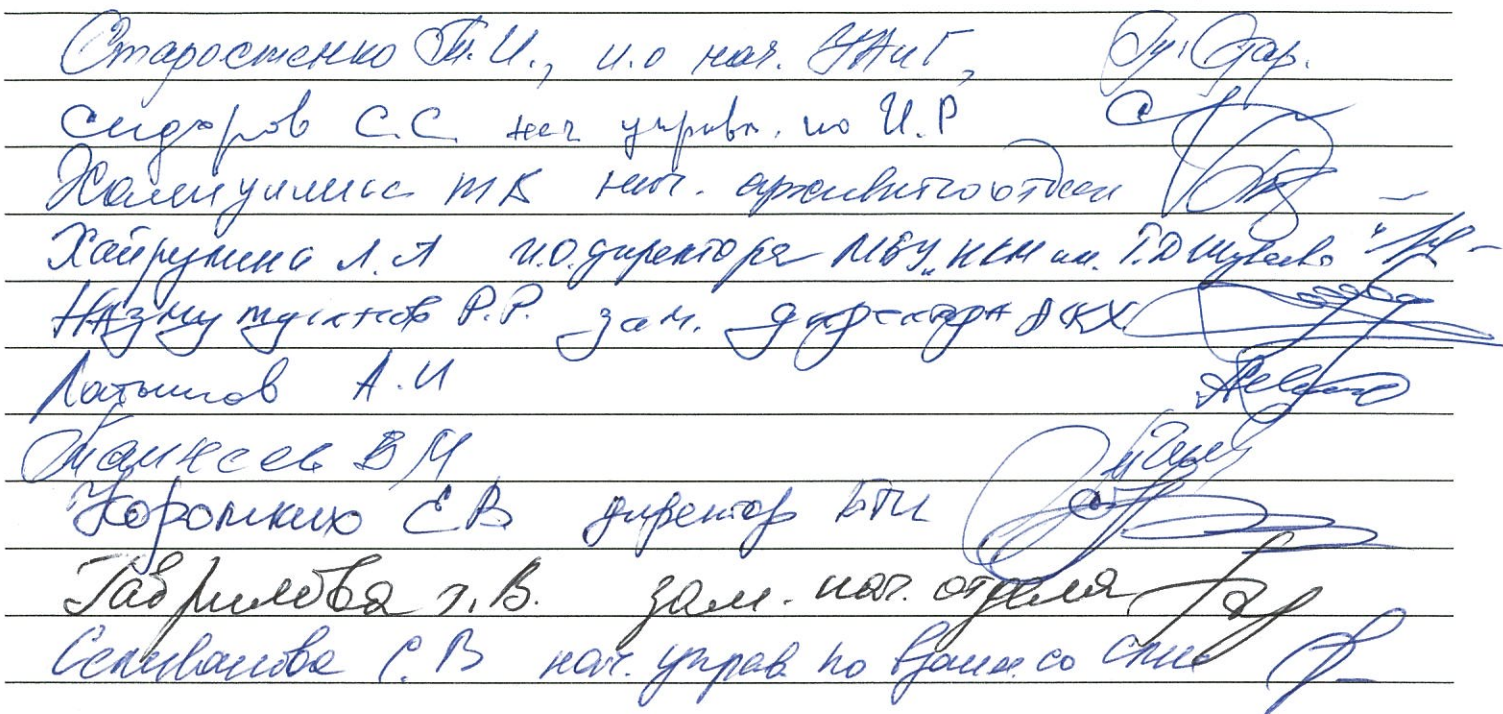 Старостенко Т.И., и.о нач. УАиГ,
Сидоров С.С. нач управ. по И.Р
Хамидуллина ТК нач. архивного отдела
Хайрулина Л.А И.О.директора МБУ „НКМ им. Г.Д Шуваева"
Назмутдинов Р.Р. зам. директора ДКХ
Латыпов А.И
ВМ
Коротких Е В директор БТИ
Гаврилова т.В. зам. нач. отдела
Селиванова С.В нач. управ по взаим. со СМИ